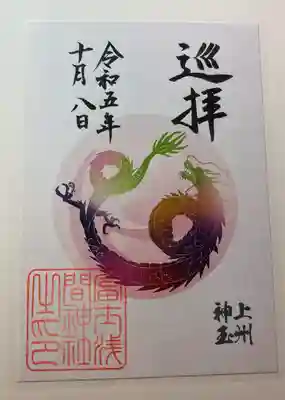 巡拝
上州
神玉
令和五年
十月八日
富士浅
間神社
之印